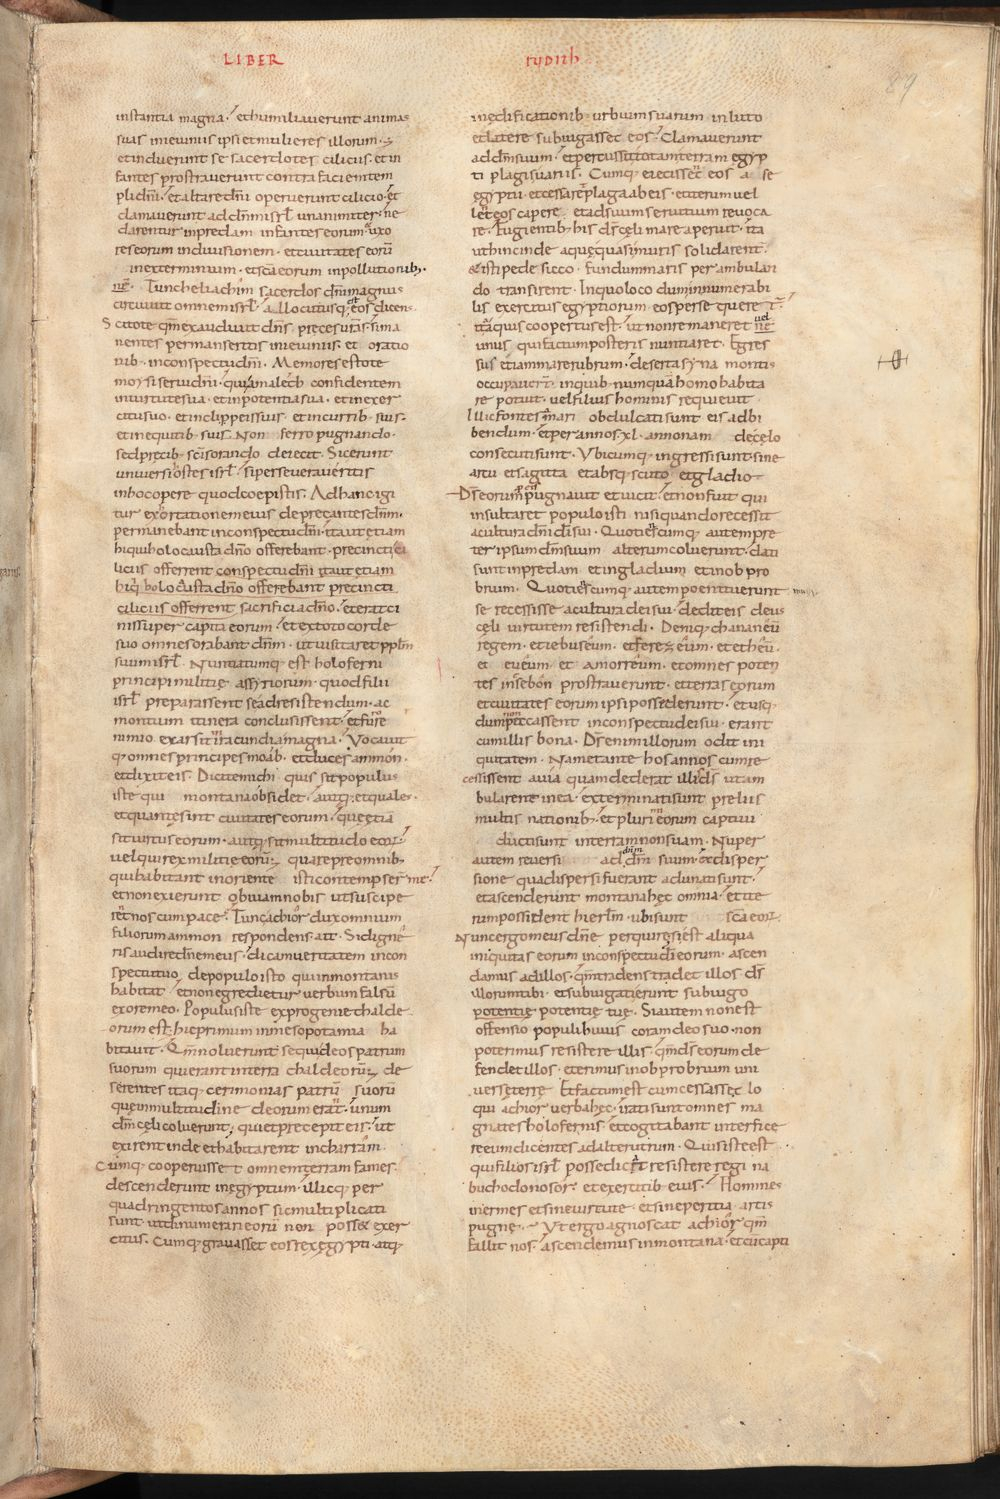 LIBER IUDITH
89
instantia magna. et humiliauerunt animas
suas inieiuniis ipsi et mulieres illorum.
et induerunt se sacerdotes ciliciis. et in
fantes prostrauerunt contra faciem tem
pli dñi. et altare dñi operuerunt cilicio. et
clamauerunt ad dñm isrł unanimiter. ne
darentur inpredam infantes eorum. & uxo
res eorum indiuisionem. et ciuitates eorũ
inexterminium. et sc̃a eorum inpollutionib;.
Tunc heliachim sacerdos dñi magnus
circuiuit omnem isrł. allocutusq; est eos dicens.
Scitote qm̃ exaudiuit dñs preces uras. si ma
nentes permanseritis inieiuniis. et oratio
nib. inconspectu dñi. Memores estote
moysi serui dñi. qui amalech confidentem
inuirtute sua. et inpotentia sua. et inexer
citu suo. et inclippeis suis. et incurrib. suis.
et inequitib. suis. Non ferro pugnando.
sed precib. sc̃is orando deiecit. Sic erunt
uniuersi hostes isrł. si perseueraueritis
inhoc opere quod coepistis. Ad hanc igi
tur exortationem eius deprecantes dñm.
permanebant inconspectu dñi. ita ut etiam
hi qui holocausta dño offerebant. precincti ci
liciis offerrent conspectu dñi ita ut etiam
hi q̃ holocausta dño offerebant precincti
ciliciis offerrent sacrificia dño. & erat ci
nis super capita eorum. et ex toto corde
suo omnes orabant dñm. ut uisitaret pplm
suum isrł. Nuntiatumq; est holoferni
principi militię assyriorum. quod filii
isrł preparassent se ad resistendum. ac
montium itinera conclusissent. et furore
nimio exarsit iracundia magna. Vocauit
q; omnes principes moab. et duces ammon.
et dixit eis. Dicite michi quis sit populus
iste qui montana obsidet. aut q; et quales.
et quante sint ciuitates eorum. quę etiā
sit uirtus eorum. aut q; sit multitudo eorꝝ.
uel qui rex militię eorũ. quare pre omnib;
qui habitant inoriente isti contempserunt me.
et non exierunt obuiam nobis ut suscipe
rent nos cum pace. Tunc achior dux omnium
filiorum ammon respondens. ait. Si digne
ris audire dñe meus. dicam ueritatem incon
spectu tuo de populo isto qui inmontanis
habitat. et non egredietur uerbum falsũ
ex ore meo. Populus iste ex progenie chalde
orum est. hic primum inmesopotamia ha
bitauit. Qm̃ noluerunt sequi deos patrum
suorum qui erant interra chaldeorũ. de
serentes itaq; cerimonias patrũ suorũ
quę inmultitudine deorum erat. unum
dm̃ cęli coluerunt. qui et precepit eis. ut
exirent inde et habitarent incharram.
Cumq; cooperuisset omnem terram fames.
descenderunt inegyptum. illicq; per
quadringentos annos sic multiplicati
sunt ut dinumerari eorũ non posset exer
citus. Cumq; grauasset eos rex egypti. atq;
inędificationib. urbium suarum inluto
et latere subiugasset eos. Clamauerunt
ad dñm suum. et percussit totam terram egyp
ti plagis uariis. Cumq; eiecissent eos a se
egyptii. et cessaret plaga ab eis. et iterum uel
lent eos capere. et ad suum seruitium reuoca
re. Fugientib; his ds̃ cęli mare aperuit. ita
ut hinc inde aquę quasi muris solidarent.
& isti pede sicco. fundum maris perambulan
do transirent. Inquo loco dum innumerabi
lis exercitus egyptiorum eos persequeretur.
ita aquis coopertus est. ut non remaneret uel
unus qui factum posteris nuntiaret. Egres
sus etiam mare rubrum. deserta syna montis
occupauerunt. inquib. numquam homo habita
re potuit. uel filius hominis requieuit.
Illic fontes amari obdulcati sunt eis ad bi
bendum. et per annos .xl. annonam de cęlo
consecuti sunt. Vbicumq; ingressi sunt. sine
arcu et sagitta et absq; scuto et gladio
Ds̃ eorum pugnauit et uicit. et non fuit qui
insultaret populo isti nisi quando recessit
a cultura dñi dei sui. Quotienscumq; autem pre
ter ipsum dm̃ suum alterum coluerunt. dati
sunt inpredam et ingladium et inobpro
brium. Quotienscumq; autem poenituerunt
se recessisse a cultura dei sui. dedit eis deus
cęli uirtutem resistendi. Deniq; chananeũ
regem. et iebuseum. et ferezeum. et etheũ.
et eueum. et amorreum. et omnes poten
tes inesebon prostrauerunt. et terras eorum
et ciuitates eorum ipsi possederunt. et usq;
dum non peccassent inconspectu dei sui. erant
cum illis bona. Ds̃ enim illorum odit ini
quitatem. Nam et ante hos annos cum re
cessissent a uia quam dederat illis ds̃ ut am
bularent inea. exterminati sunt preliis
multis nationib; et plurimi eorum captiui
ducti sunt interram non suam. Nuper
autem reuersi ad dm̃ suum. ex disper
sione qua dispersi fuerant adunati sunt.
et ascenderunt montana hęc omnia. et ite
rum possident hierłm. ubi sunt sc̃a eorꝝ.
Nunc ergo meus dñe perquire si est aliqua
iniquitas eorum inconspectu di eorum. ascen
damus ad illos. qm̃ tradens tradet illos ds̃
illorum tibi. et subiugati erunt sub iugo
potentię potentię tuę. Si autem non est
offensio populi huius coram deo suo. non
poterimus resistere illis. qm̃ ds̃ eorum de
fendet illos. et erimus inobprobrium uni
uersę terrę. Et factum est cum cessasset lo
qui achior uerba hęc. irati sunt omnes ma
gnates holofernis. et cogitabant interfice
re eum dicentes ad alterutrum. Quis iste est
qui filios isrł posse dicat resistere regi na
buchodonosor. et exercitib eius. Homines
inermes et sine uirtute. et sine peritia artis
pugnę. Vt ergo agnoscat achior qm̃
fallit nos. ascendemus inmontana. et cũ capti